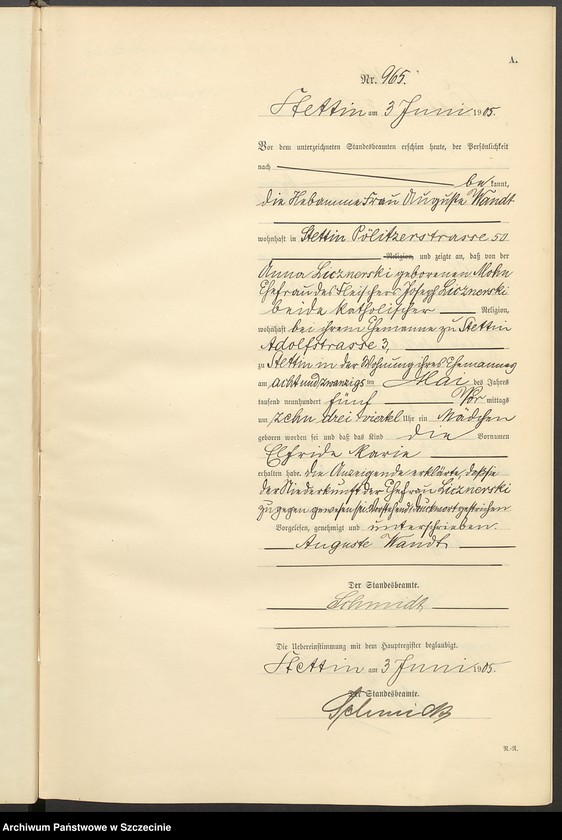 A.
Nr. 965.
Stettin am 3 Juni 1905.
Vor dem unterzeichneten Standesbeamten erschien heute, der Persönlichkeit
nach
be kannt,
die Hebamme Frau Auguste Wandt
wohnhaft in Stettin Pölitzerstrasse 50
Religion, und zeigte an, daß von der
Anna Licznerski geborenen Mohn
Ehefrau des Fleischers Joseph Licznerski
beide katholischer Religion,
wohnhaft bei ihrem Ehemanne zu Stettin
Adolfstrasse 3,
zu Stettin in der Wohnung ihres Ehemannes
am achtundzwanzigs ten Mai des Jahres
tausend neunhundert fünf Vor mittags
um zehn drei viertel Uhr ein Mädchen
geboren worden sei und daß das Kind die Vornamen
Elfride Marie
erhalten habe. Die Anzeigende erklärte, daß sie
der Niederkunft der Ehefrau Licznerski
zugegen gewesen sei. Vorstehend 1 Druckwort gestrichen.
Vorgelesen, genehmigt und unterschrieben.
Auguste Wandt
Der Standesbeamte.
Schmidt
Die Uebereinstimmung mit dem Hauptregister beglaubigt.
Stettin am 3 Juni 1905.
Der Standesbeamte.
Schmidt
R.-R.
Archiwum Państwowe w Szczecinie